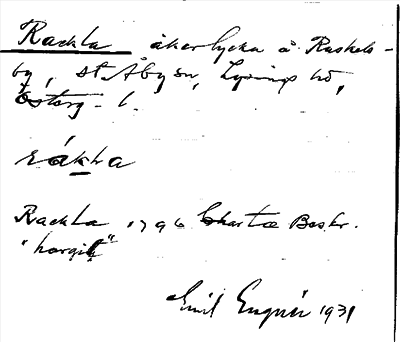 Rackla åkerlycka å Raskels-
by, St. Åby sn, Lysings hd,
Österg. l.
rákla
Rackla 1796 Charta Beskr.
"horgilt"
Emil Engnér 1931